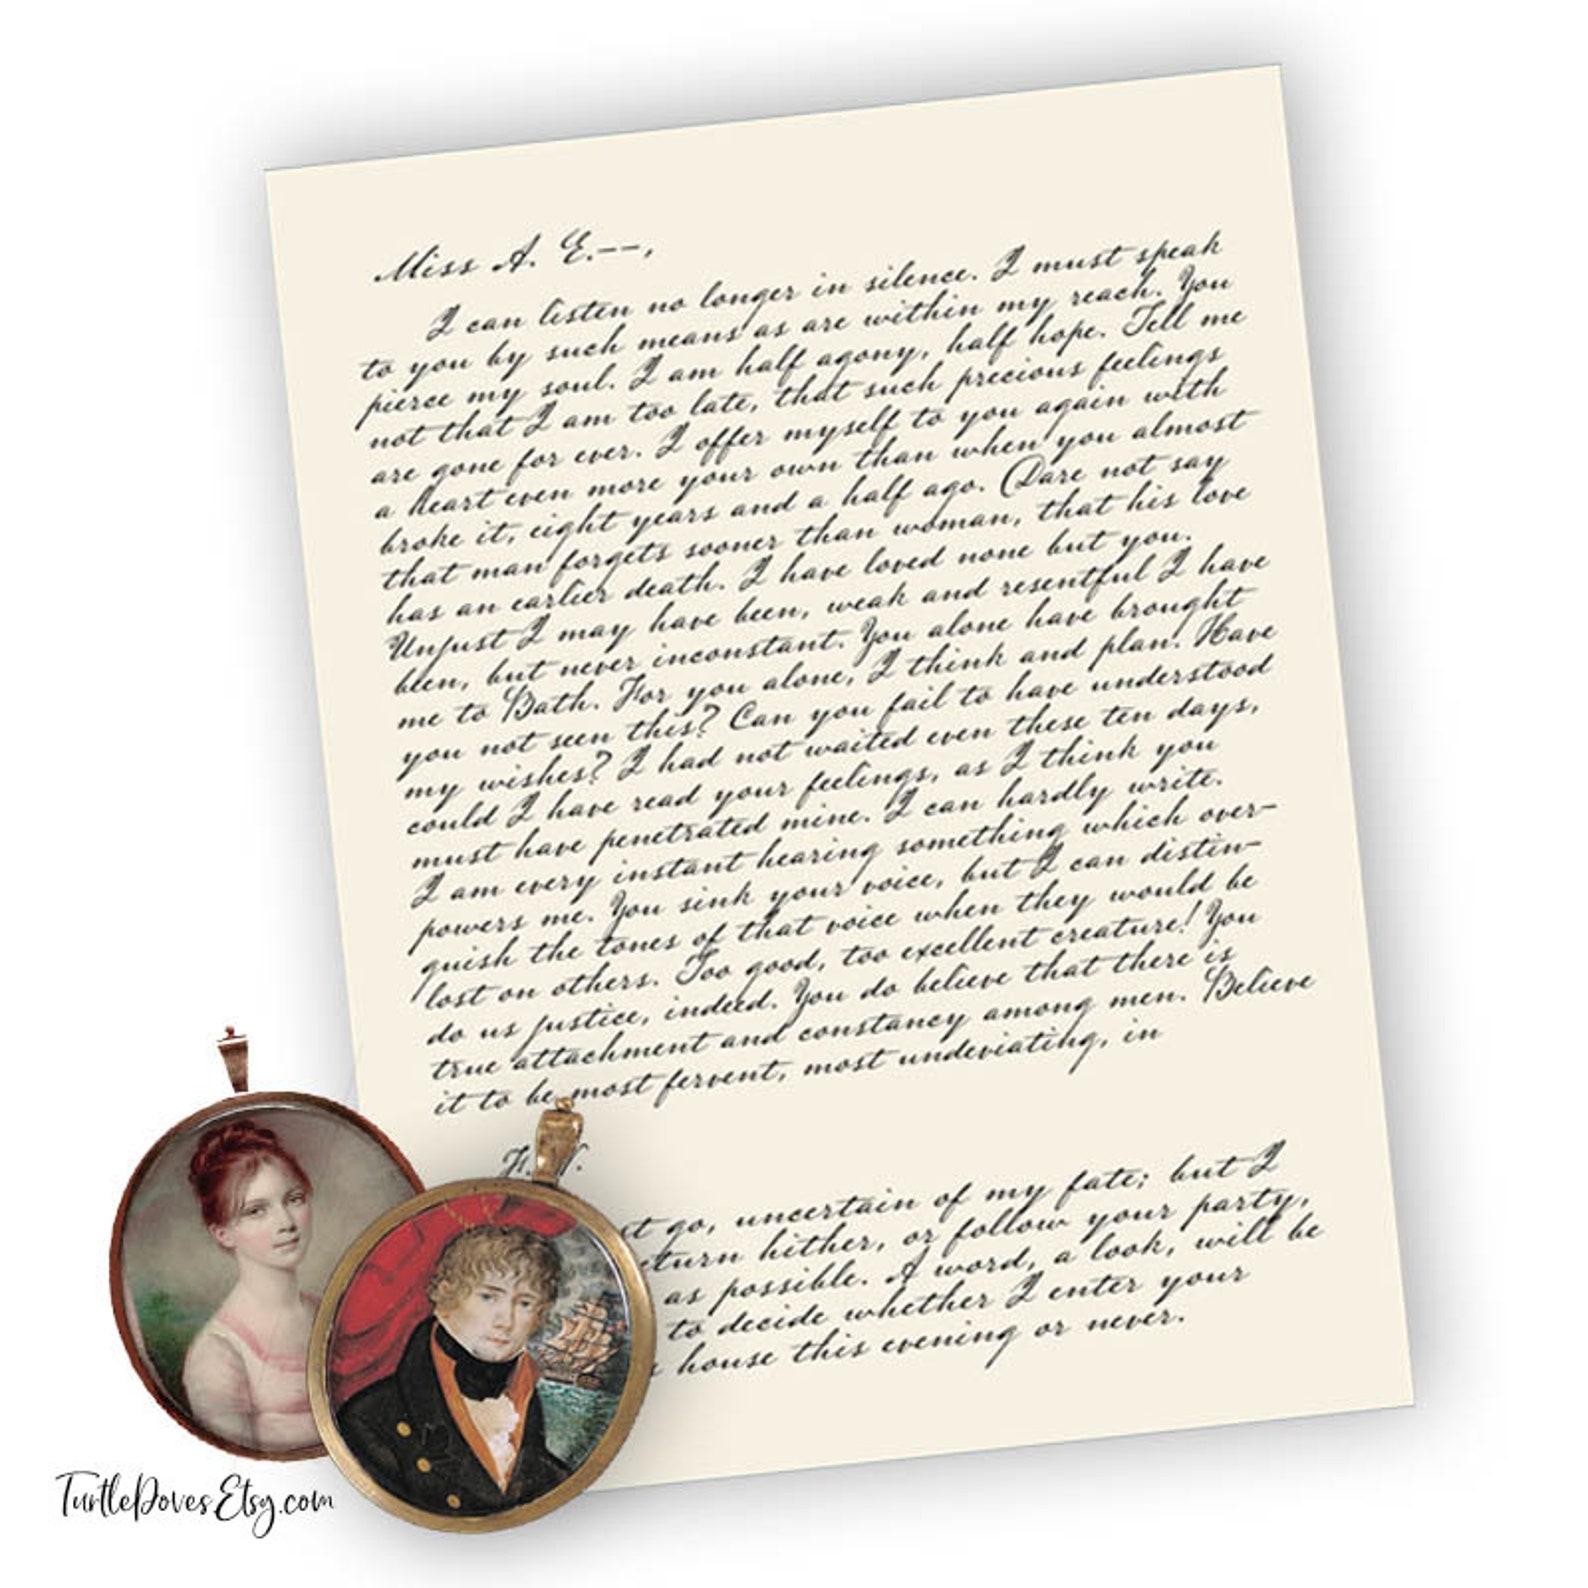 Miss A. E.--,
I can listen no longer in silence. I must speak
to you by such means as are within my reach. You
pierce my soul. I am half agony, half hope. Tell me
not that I am too late, that such precious feelings
are gone for ever. I offer myself to you again with
a heart even more your own than when you almost
broke it, eight years and a half ago. Dare not say
that man forgets sooner than woman, that his love
has an earlier death. I have loved none but you.
Unjust I may have been, weak and resentful I have
been, but never inconstant. You alone have brought
me to Bath. For you alone, I think and plan. Have
you not seen this? Can you fail to have understood
my wishes? I had not waited even these ten days,
could I have read your feelings, as I think you
must have penetrated mine. I can hardly write.
I am every instant hearing something which over-
powers me. You sink your voice, but I can distin-
guish the tones of that voice when they would be
lost on others. Too good, too excellent creature! You
do us justice, indeed. You do believe that there is
true attachment and constancy among men. Believe
it to be most fervent, most undeviating, in
F.
go, uncertain of my fate; but I
hither, or follow your party,
as possible. A word, a look, will be
to decide whether I enter your
house this evening or never.
TurtleDovesEtsy.com